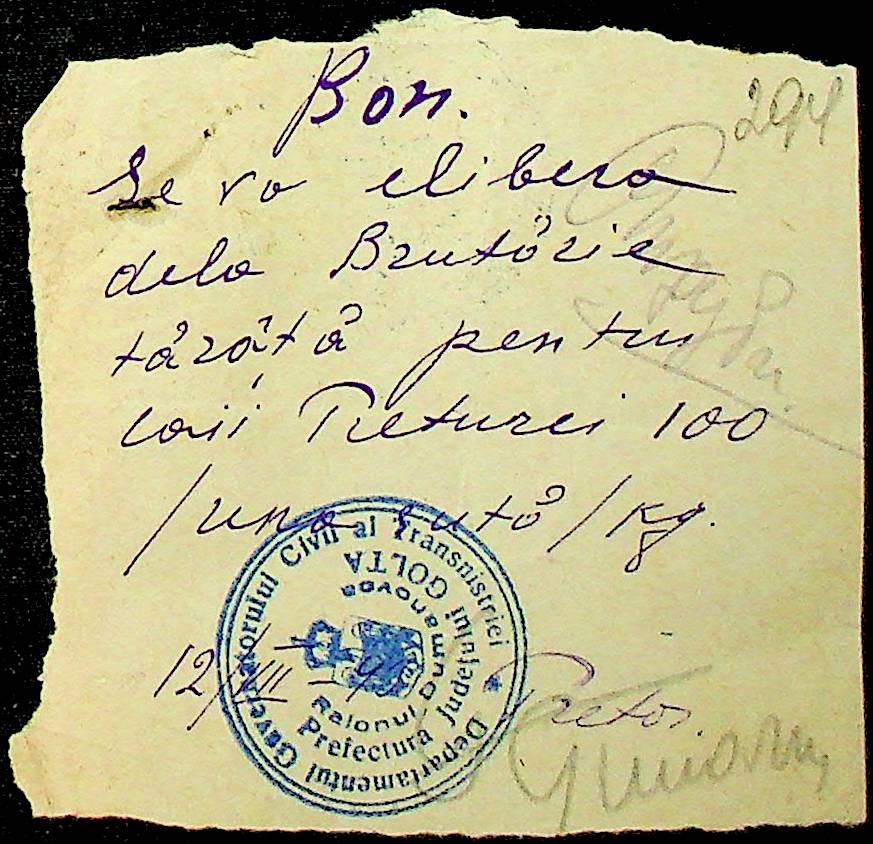 Bon.
294
Se va elibera
dela Brutărie
tărâță pentru
caii Preturei 100
/una sută/ Kg.
12/VII
Pretor
Departamentul Guvernatorului Civil al Transnistriei
Prefectura Județului GOLTA
Raionul Dumanovca